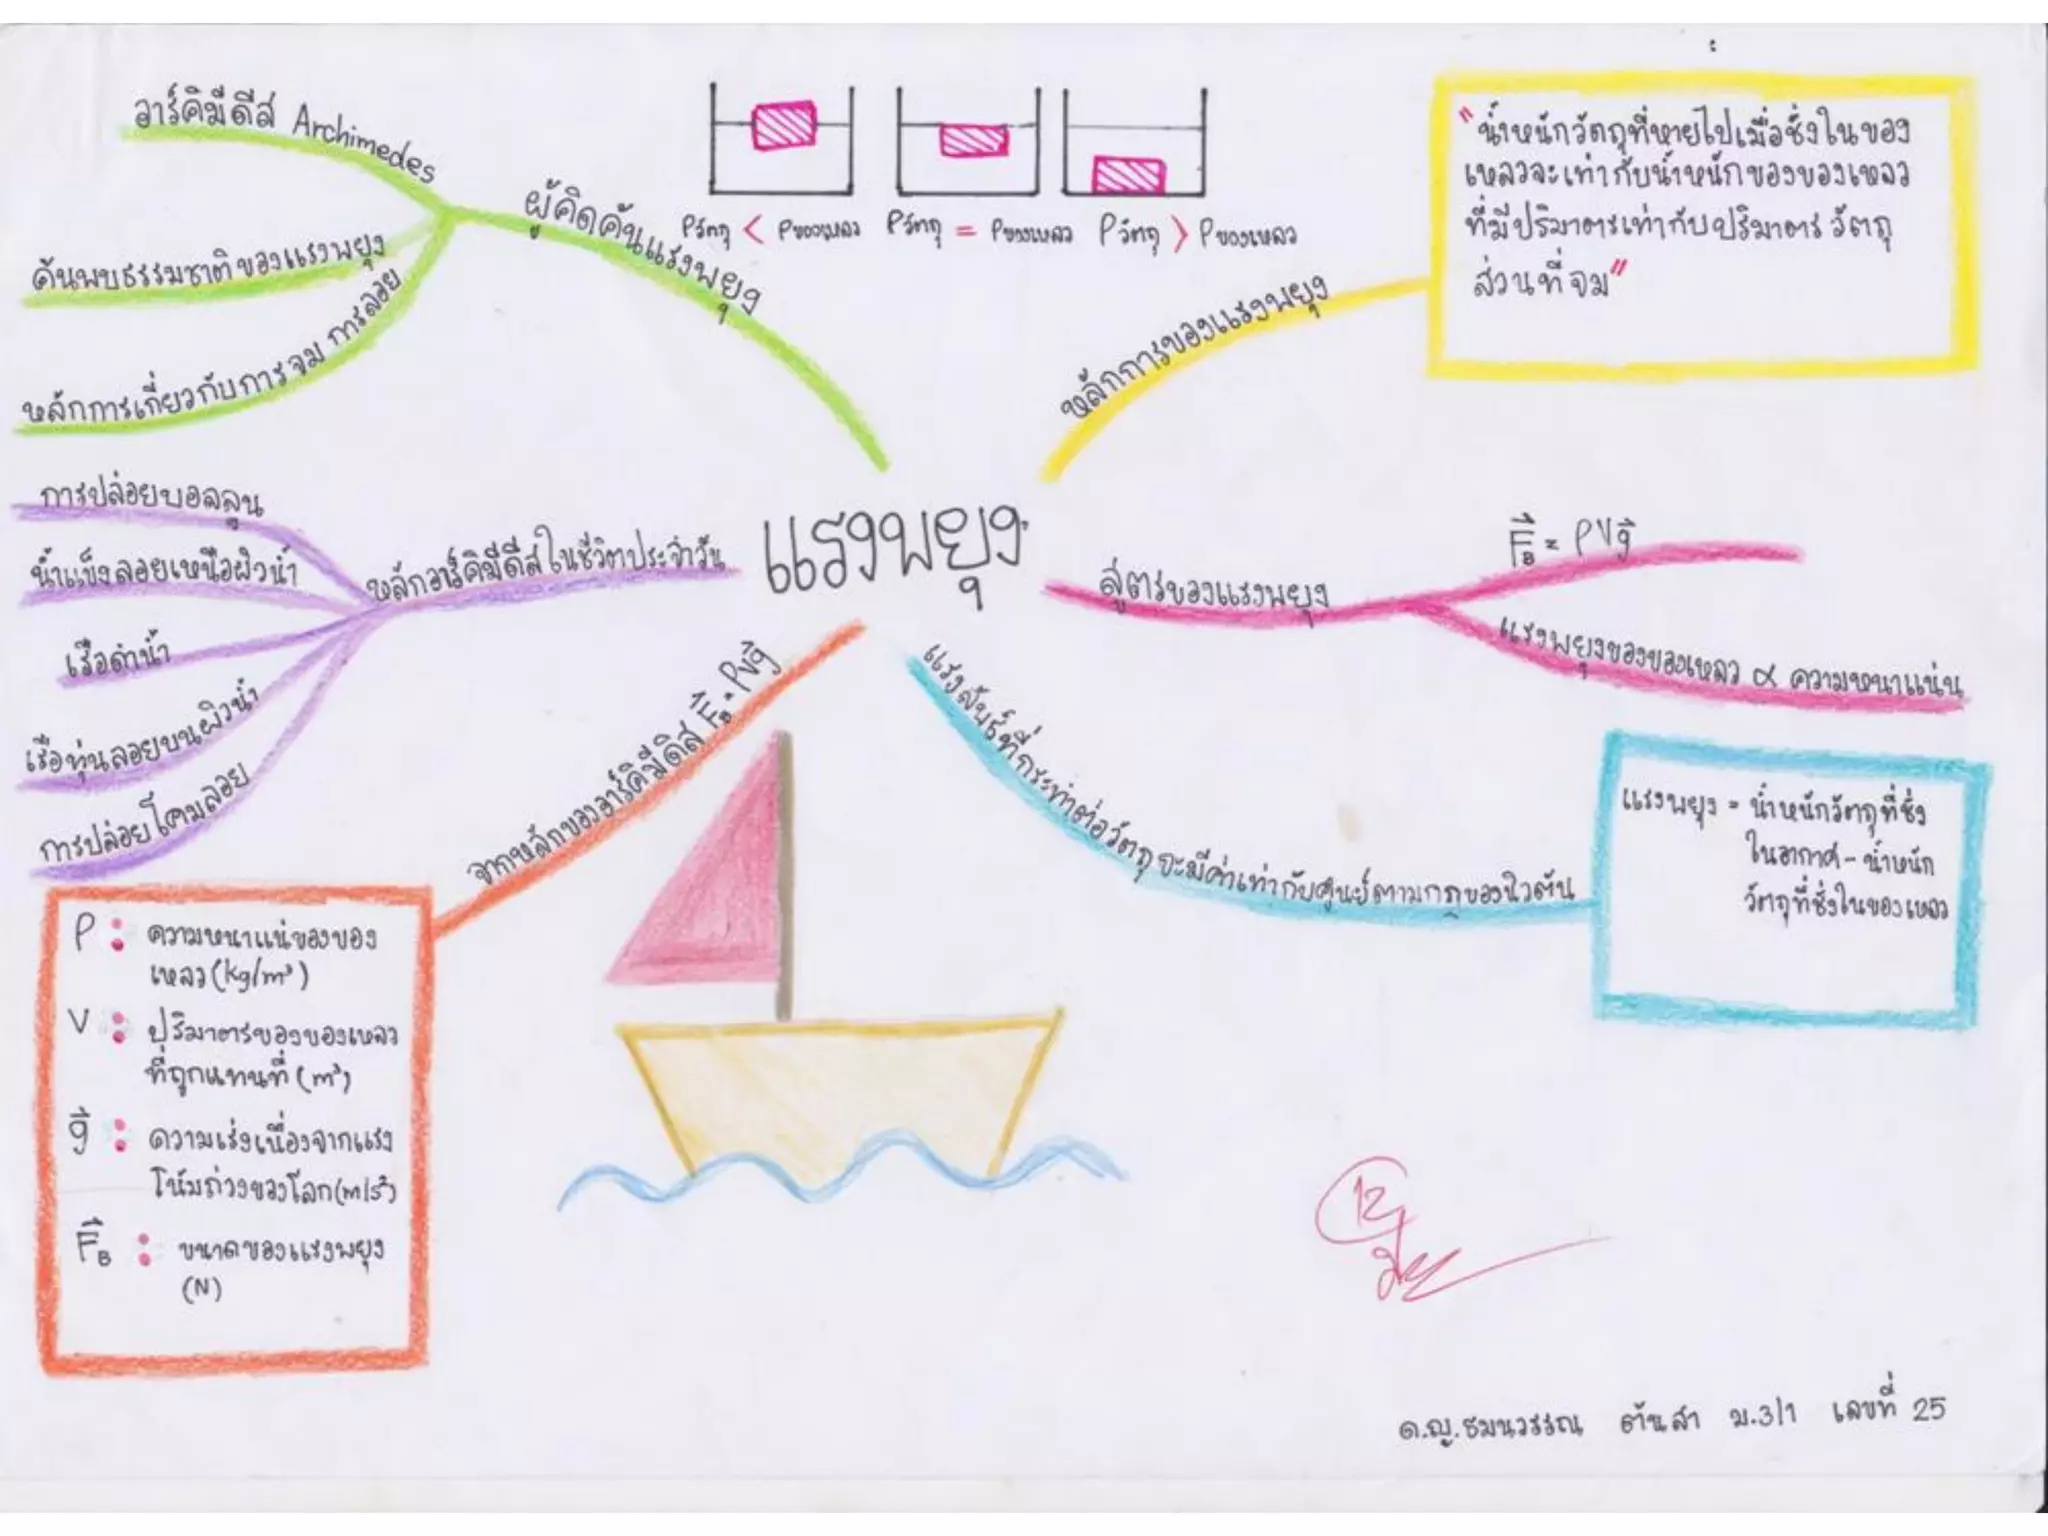 อาร์คิมีดีส Archimedes
ผู้คิดค้นแรงพยุง
ค้นพบธรรมชาติของแรงพยุง
หลักการเกี่ยวกับการจม การลอย
ρวัตถุ < ρของเหลว
ρวัตถุ = ρของเหลว
ρวัตถุ > ρของเหลว
หลักการของแรงพยุง
"น้ำหนักวัตถุที่หายไปเมื่อชั่งในของ
เหลวจะเท่ากับน้ำหนักของของเหลว
ที่มีปริมาตรเท่ากับปริมาตรวัตถุ
ส่วนที่จม"
แรงพยุง
หลักอาร์คิมีดีสในชีวิตประจำวัน
การปล่อยบอลลูน
น้ำแข็งลอยเหนือผิวน้ำ
เรือดำน้ำ
เรือทุ่นลอยบนผิวน้ำ
การปล่อยโคมลอย
สูตรของแรงพยุง
F⃗B = ρVg⃗
แรงพยุงของของเหลว ∝ ความหนาแน่น
แรงลัพธ์ที่กระทำต่อวัตถุจะมีค่าเท่ากับศูนย์ตามกฎของนิวตัน
แรงพยุง = น้ำหนักวัตถุที่ชั่ง
ในอากาศ - น้ำหนัก
วัตถุที่ชั่งในของเหลว
จากหลักของอาร์คิมีดิส F⃗B = ρVg⃗
ρ : ความหนาแน่ของของ
เหลว (kg/m³)
V : ปริมาตรของของเหลว
ที่ถูกแทนที่ (m³)
g⃗ : ความเร่งเนื่องจากแรง
โน้มถ่วงของโลก (m/s²)
F⃗B : ขนาดของแรงพยุง
(N)
12
ด.ญ.ธมนวรรณ ต้นสา ม.3/1 เลขที่ 25